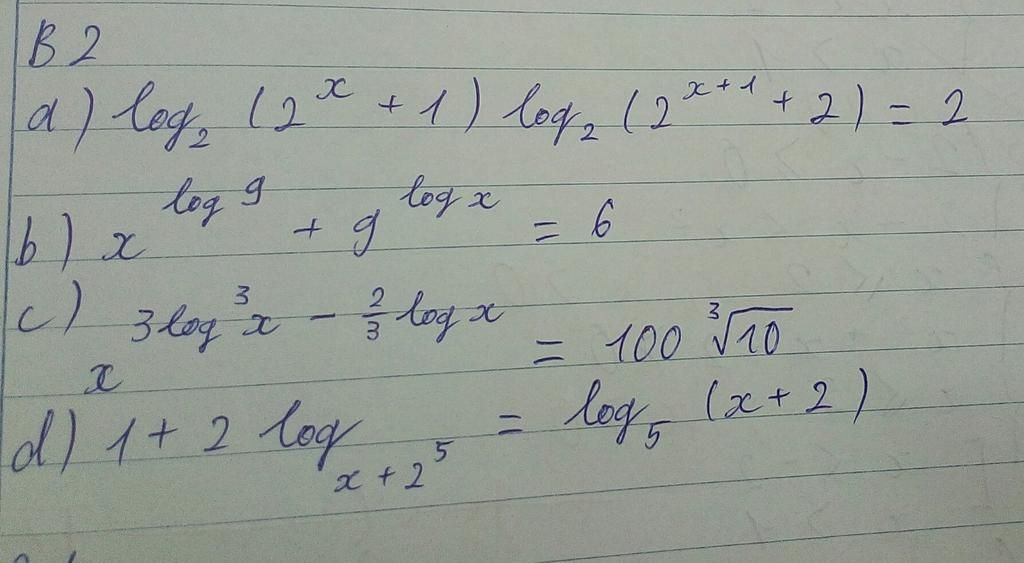 B 2
a) log₂ (2^x + 1) log₂ (2^(x+1) + 2) = 2
b) x^(log 9) + 9^(log x) = 6
c) x^(3 log³ x − 2/3 log x) = 100 ∛10
d) 1 + 2 log_(x+2) 5 = log₅ (x + 2)